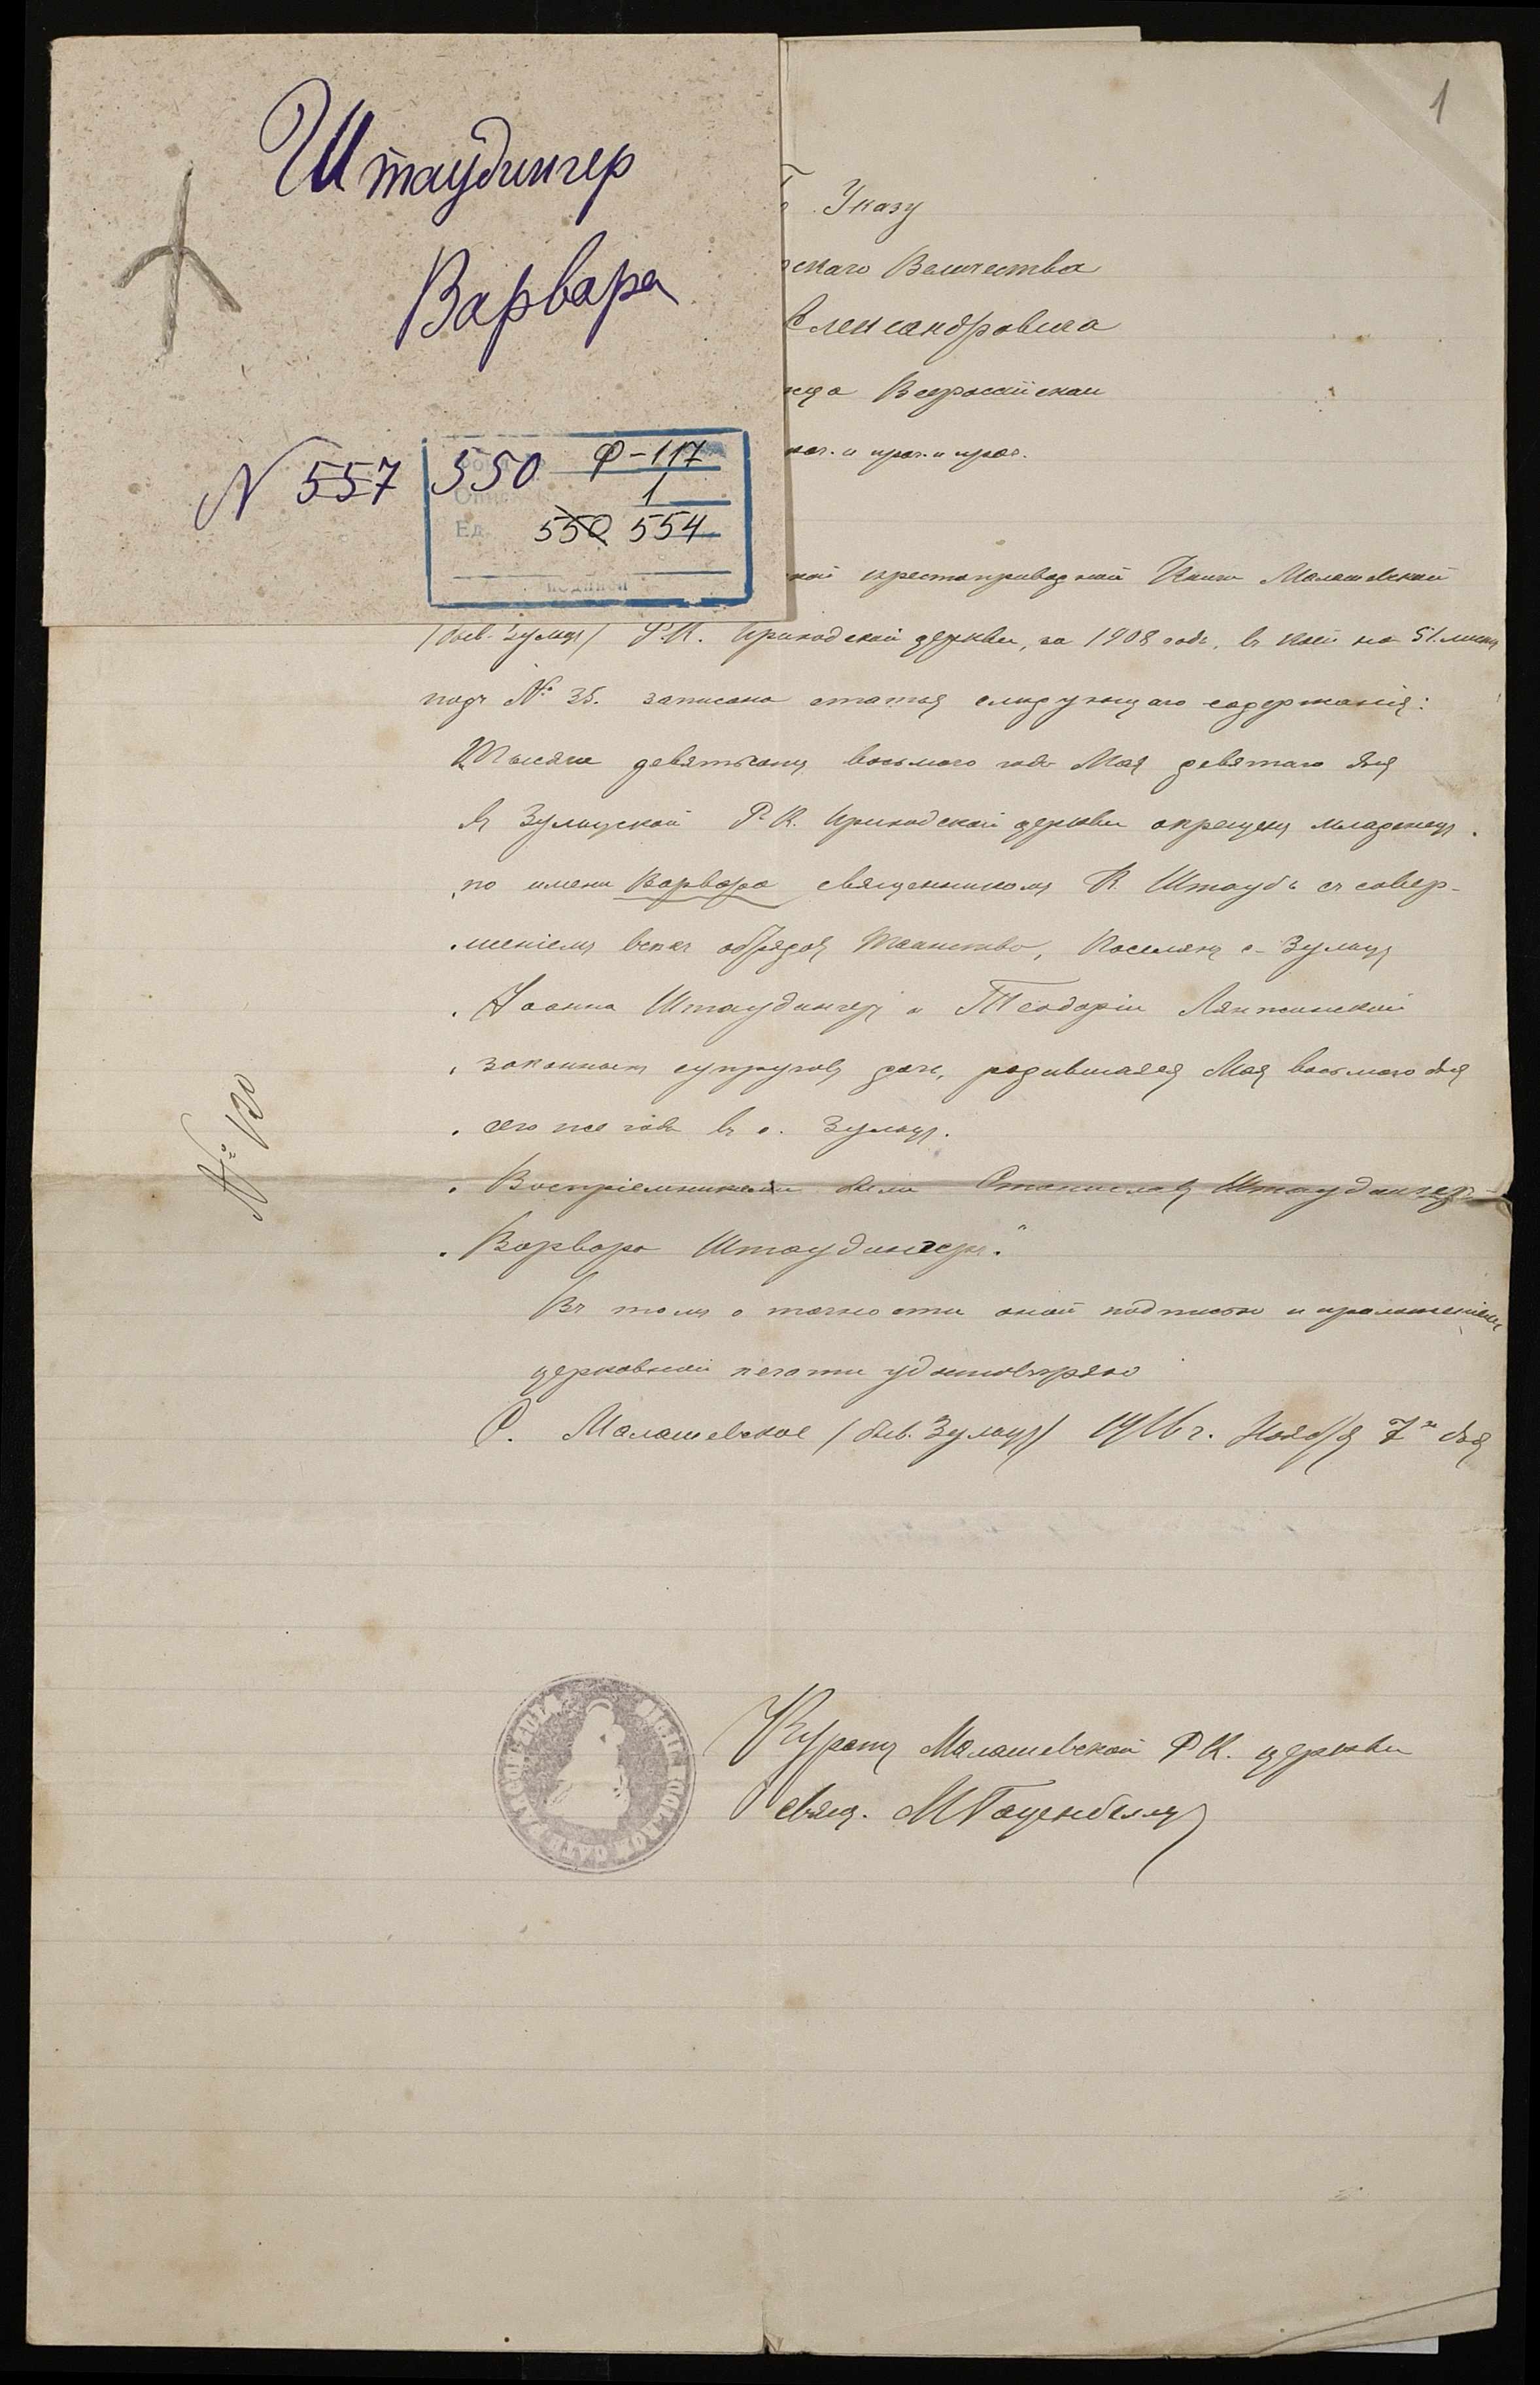 Штаудингер
Варвара
N 557
550 Ф-117
1
Ед. 550 554
1
Указу
скаго Величества
Александровича
жца Всероссійскаи
проч. и проч. и проч.
ной крестоприводной Книги Малашевской
/быв. Зульцъ/ Р.К. Приходской церкви, за 1908 годъ, въ коей на 51. листѣ
подъ № 35. записана статья слѣдующаго содержанія:
Тысяча девятьсотъ восьмого года Мая девятаго дня
въ Зульцской Р.К. Приходской церкви окрещенъ младенецъ
по имени Варвара священникомъ К. Штаубъ съ совер-
шеніемъ всѣхъ обрядовъ Таинства, Поселянъ с. Зульцъ
Іоанна Штаудингеръ и Теодоріи
законныхъ супруговъ дочь, родившаяся Мая восьмого дня
сего же года въ с. Зульцъ.
Воспріемниками были Станиславъ Штаудингеръ
Варвара Штаудингеръ."
Въ томъ о точности оной подписью и приложеніемъ
церковной печати удостовѣряю
С. Малашевское /быв. Зульцъ/ 1916 г. Ноября 7го дня
№ 130
Куратъ Малашевской Р.К. церкви
Свящ.